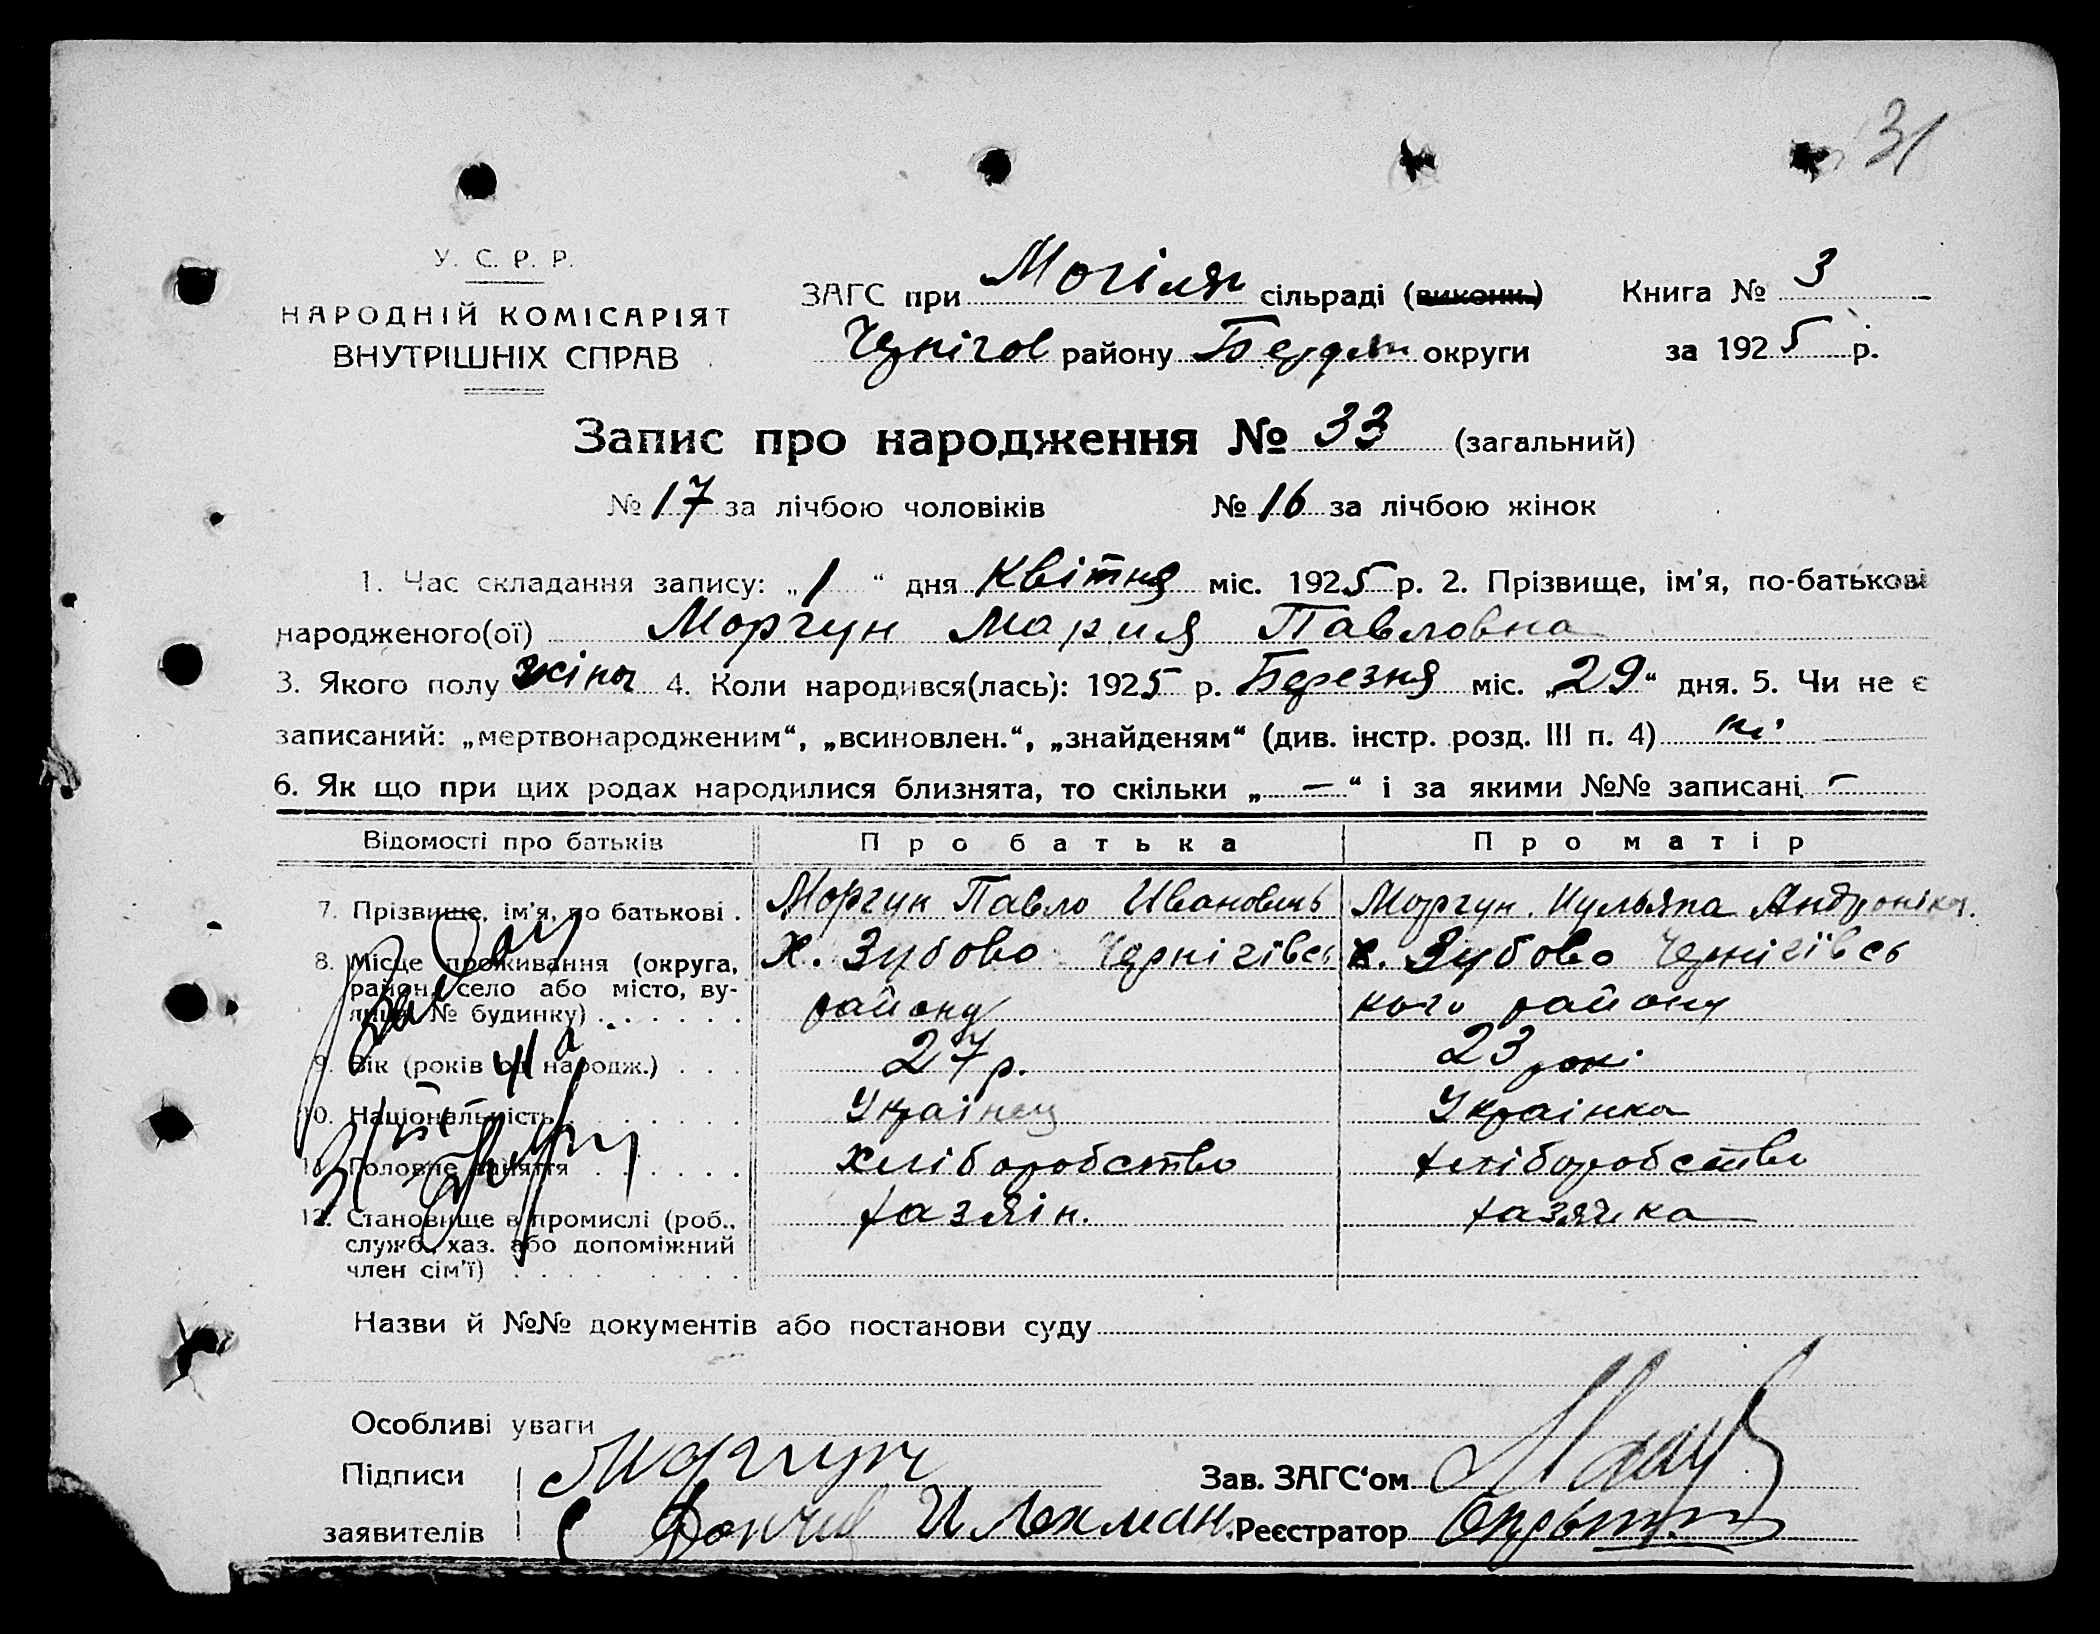 31
У. С. Р. Р.
НАРОДНІЙ КОМІСАРІЯТ
ВНУТРІШНІХ СПРАВ
ЗАГС при Могіляг сільраді (виконк.)
Чернігов району Бердян округи
Книга № 3
за 1925 р.
Запис про народження № 33 (загальний)
№ 17 за лічбою чоловіків № 16 за лічбою жінок
1. Час складання запису: „1“ дня Квітня міс. 1925 р. 2. Прізвище, ім'я, по-батькові
народженого(ої) Моргун Мария Павловна
3. Якого полу жіноч 4. Коли народився(лась): 1925 р. Березня міс. „29“ дня. 5. Чи не є
записаний: „мертвонародженим“, „всиновлен.“, „знайденям“ (див. інстр. розд. III п. 4) ні
6. Як що при цих родах народилися близнята, то скільки „—“ і за якими №№ записані —
Відомості про батьків Про батька Про матір
7. Прізвище, ім'я, по батькові . Моргун Павло Иванович Моргун Андроніка.
8. Місце проживання (округа, Х. Зубово Чернігівсь х. Зубово Чернігівсь
район, село або місто, ву-
лиця, № будинку) . . . . . . району кого району
9. Вік (років од народж.) . . . 27 р. 23 рок.
10. Національність . . . . . . Українец Українка
11. Головне заняття . . . . . . хліборобство хліборобство
12. Становище в промислі (роб., хазяін. хазячка
служб., хаз. або допоміжний
член сім'ї) . . . . . . . . .
Назви й №№ документів або постанови суду
Особливі уваги
Підписи Моргун Зав. ЗАГС'ом
заявителів Реєстратор